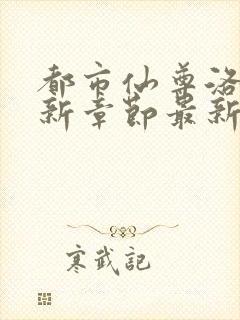 都市仙尊洛
新章節最新
寒武記